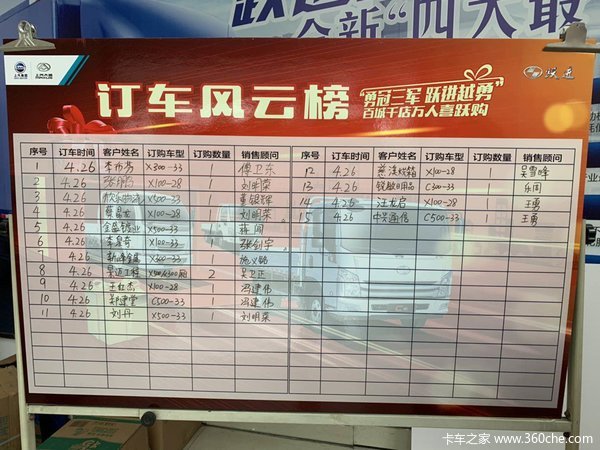 跃进
全新“四大最
上汽集团
上汽大通
MAXUS
跃进
订车风云榜
“勇冠三军 跃进越勇”
百城千店万人喜跃购
序号 订车时间 客户姓名 订购车型 订购数量 销售顾问
1 4.26 X300-33 1 傅卫东
2 4.26 张鹏 X100-28 1 刘明荣
3 4.26 X500-33 1 黄银辉
4 4.26 X100-28 1 刘明荣
5 4.26 X500-33 1 蒋阅
6 4.26 李星奇 X100-33 1 张创宇
7 4.26 X500-33 1 施义铭
8 4.26 2 吴卫正
9 4.26 王红杰 X100-28 1 冯建伟
10 4.26 郑建堂 C500-33 1 冯建伟
11 4.26 刘丹 X500-33 1 刘明荣
序号 订车时间 客户姓名 订购车型 订购数量 销售顾问
12 4.26 慈溪烧箱 X100-28 1 吴雪峰
13 4.26 锐敏日用品 C300-33 1 乐阅
14 4.26 汪龙启 X100-28 1 王勇
15 4.26 中央通信 C500-33 1 王勇
卡车之家 www.360che.com